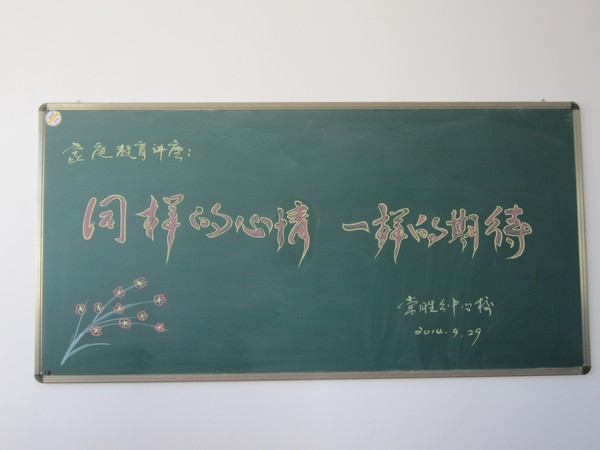 家庭教育讲座:
同样的心情 一样的期待
常胜乡中心校
2014.9.29